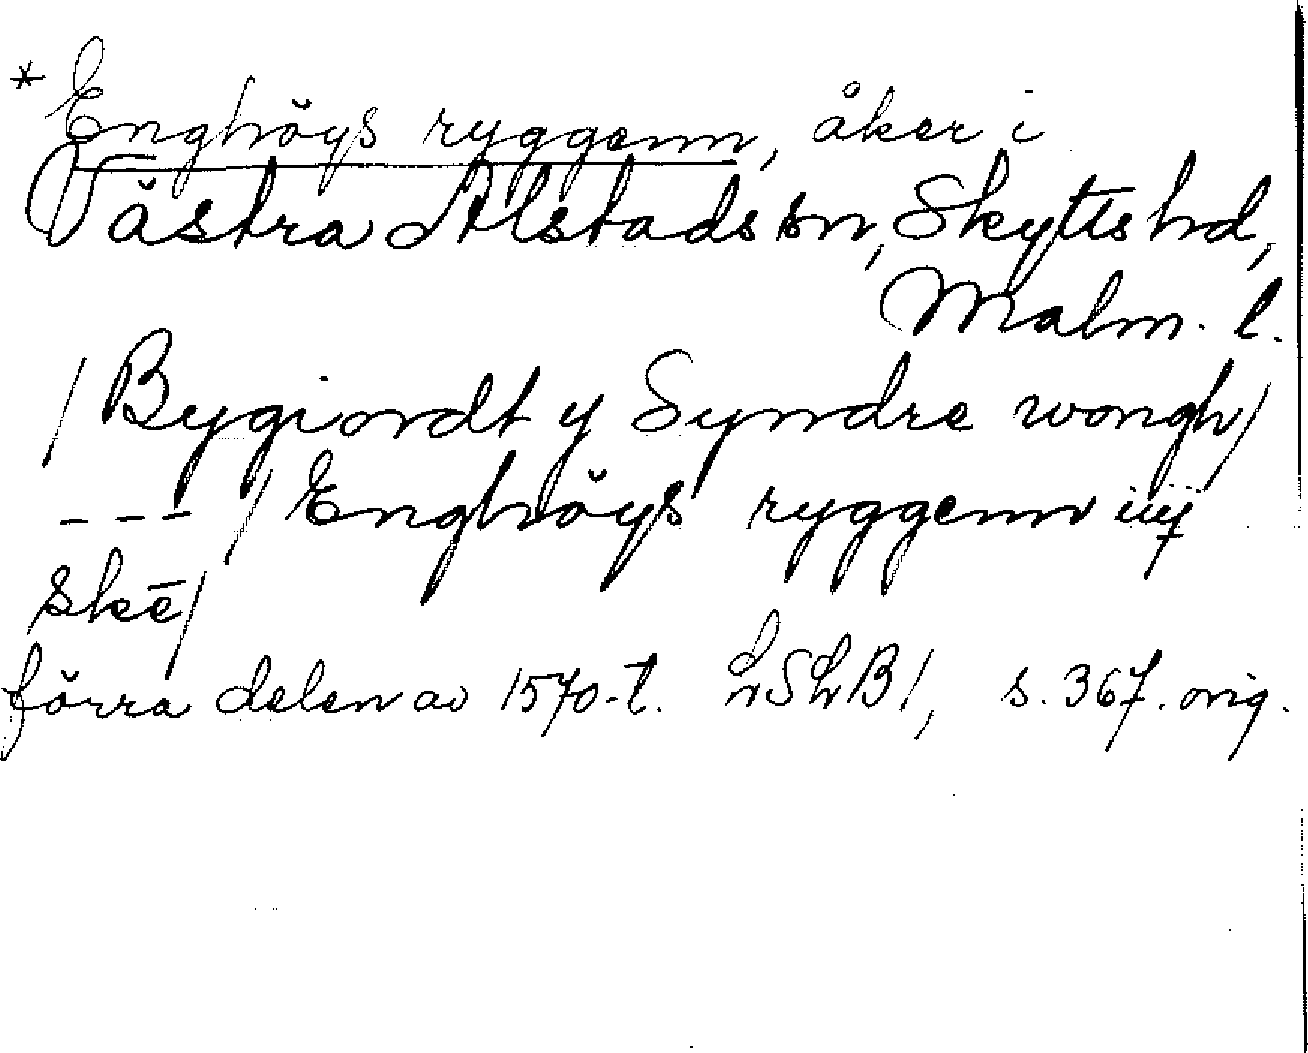 * Enghöys ryggenn, åker i
Västra Alstads sn, Skytts hd,
Malm. l.
/ Bygiordt y Syndre wongh/
--- / Enghöys ryggenn iiij
skē/
förra delen av 1570-t. LSLB1, s. 367. orig.